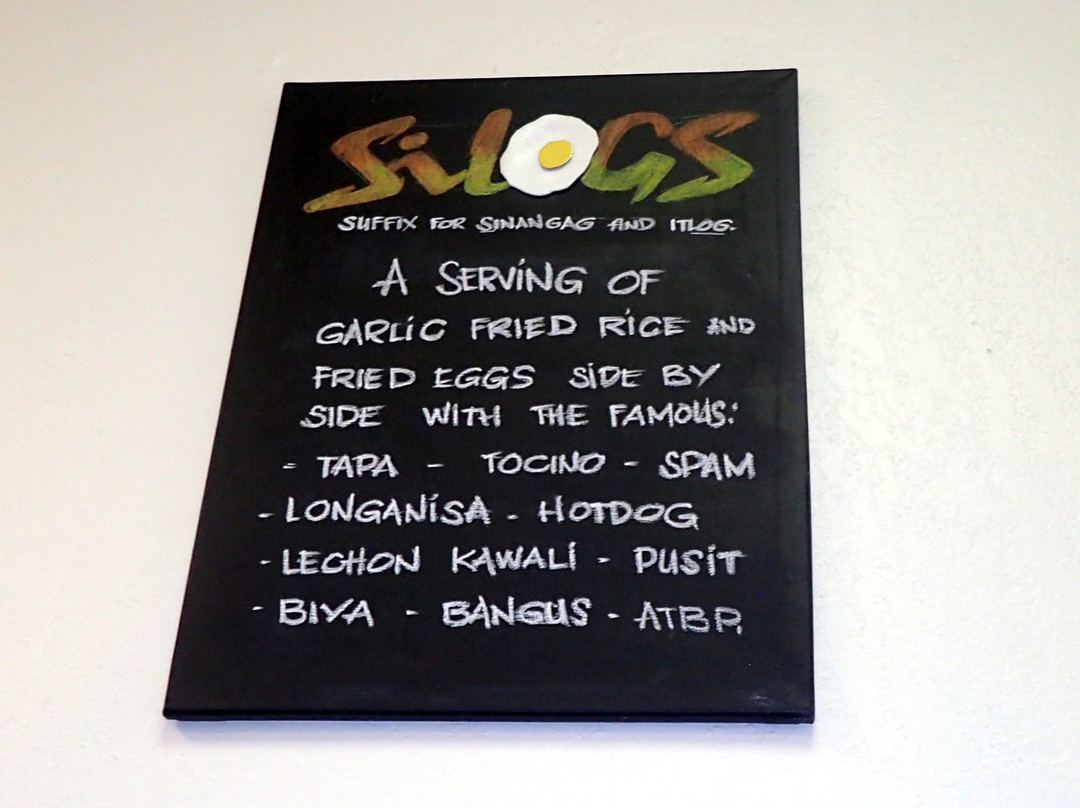 SiLOGS
SUFFIX FOR SINANGAG AND ITLOG.
A SERVING OF
GARLIC FRIED RICE AND
FRIED EGGS SIDE BY
SIDE WITH THE FAMOUS:
- TAPA - TOCINO - SPAM
- LONGANISA - HOTDOG
- LECHON KAWALI - PUSIT
- BIYA - BANGUS - ATBP.